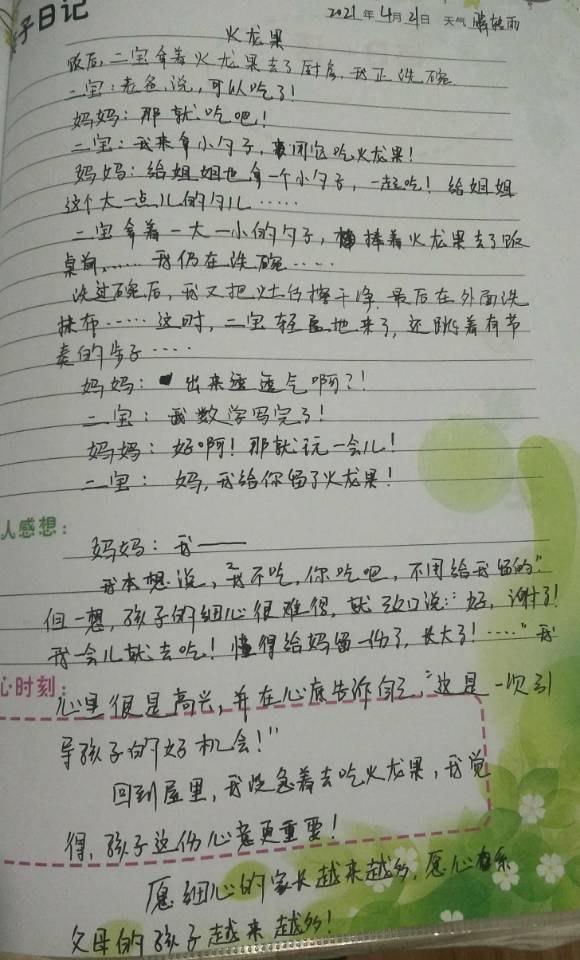 子日记
2021年4月21日 天气 晴转雨
火龙果
饭后，二宝拿着火龙果去了厨房，我正洗碗
二宝：老爸说，可以吃了！
妈妈：那就吃吧！
二宝：我来拿小勺子，来吃火龙果！
妈妈：给姐姐也拿一个小勺子，一起吃！给姐姐
这个大一点儿的勺儿……
二宝拿着一大一小的勺子，捧着火龙果去了饭
桌前，……我仍在洗碗……
洗过碗后，我又把灶台擦干净，最后在外面洗
抹布……这时，二宝轻地来了，还跳着有节
奏的步子……
妈妈：出来透透气啊？！
二宝：我数学写完了！
妈妈：好啊！那就玩一会儿！
二宝：妈，我给你留了火龙果！
人感想：
妈妈：我——
我本想说，"我不吃，你吃吧，不用给我留的"
但一想，孩子的细心很难得，就改口说："好，谢了！
我一会儿就去吃！懂得给妈留一份了，长大了！……"我
心时刻：
心里很是高兴，并在心底告诉自己"这是一次引
导孩子的好机会！"
回到屋里，我没急着去吃火龙果，我觉
得，孩子这份心意更重要！
愿细心的家长越来越多，愿心有
父母的孩子越来越多！